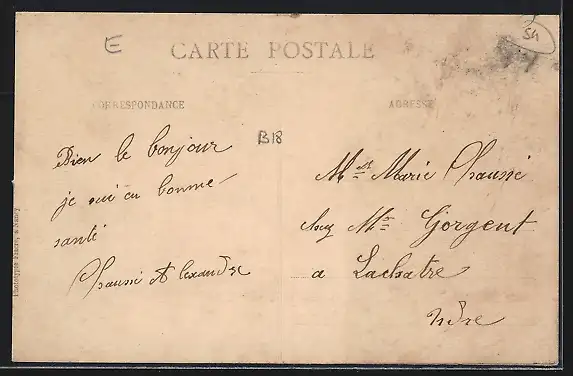 E
54
CARTE POSTALE
CORRESPONDANCE
ADRESSE
B18
Bien le bonjour
je sui en bonne
santé
Chaussé Alexandre
Mlle Marie Chaussé
chez Mr Gorgent
a Lachatre
Indre